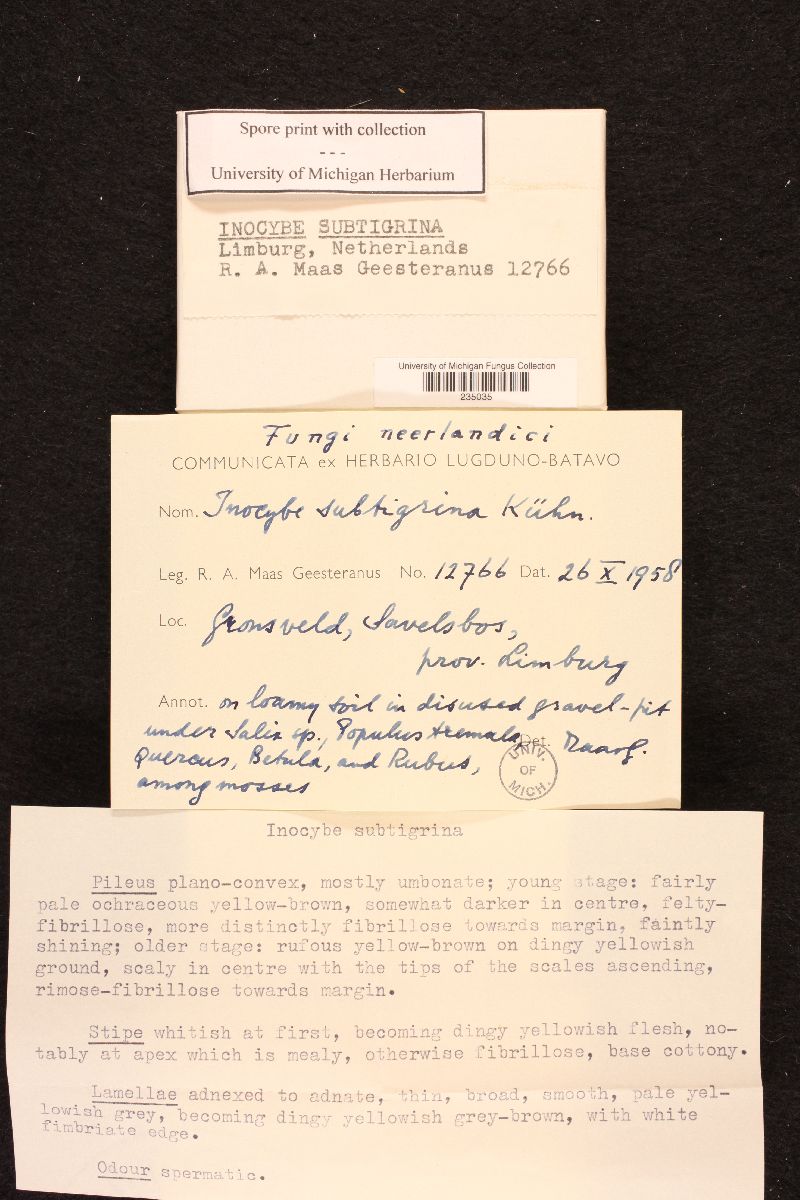 Spore print with collection
---
University of Michigan Herbarium
INOCYBE SUBTIGRINA
Limburg, Netherlands
R. A. Maas Geesteranus 12766
University of Michigan Fungus Collection
235035
Fungi neerlandici
COMMUNICATA ex HERBARIO LUGDUNO-BATAVO
Nom. Inocybe subtigrina Kühn.
Leg. R. A. Maas Geesteranus No. 12766 Dat. 26 X 1958
Loc. Gronsveld, Savelsbos,
prov. Limburg
Annot. on loamy soil in disused gravel-pit
under Salix sp., Populus tremula,
Det. Maasg.
Quercus, Betula, and Rubus,
among mosses
UNIV.
OF
MICH.
Inocybe subtigrina
Pileus plano-convex, mostly umbonate; young stage: fairly
pale ochraceous yellow-brown, somewhat darker in centre, felty-
fibrillose, more distinctly fibrillose towards margin, faintly
shining; older stage: rufous yellow-brown on dingy yellowish
ground, scaly in centre with the tips of the scales ascending,
rimose-fibrillose towards margin.
Stipe whitish at first, becoming dingy yellowish flesh, no-
tably at apex which is mealy, otherwise fibrillose, base cottony.
Lamellae adnexed to adnate, thin, broad, smooth, pale yel-
lowish grey, becoming dingy yellowish grey-brown, with white
fimbriate edge.
Odour spermatic.